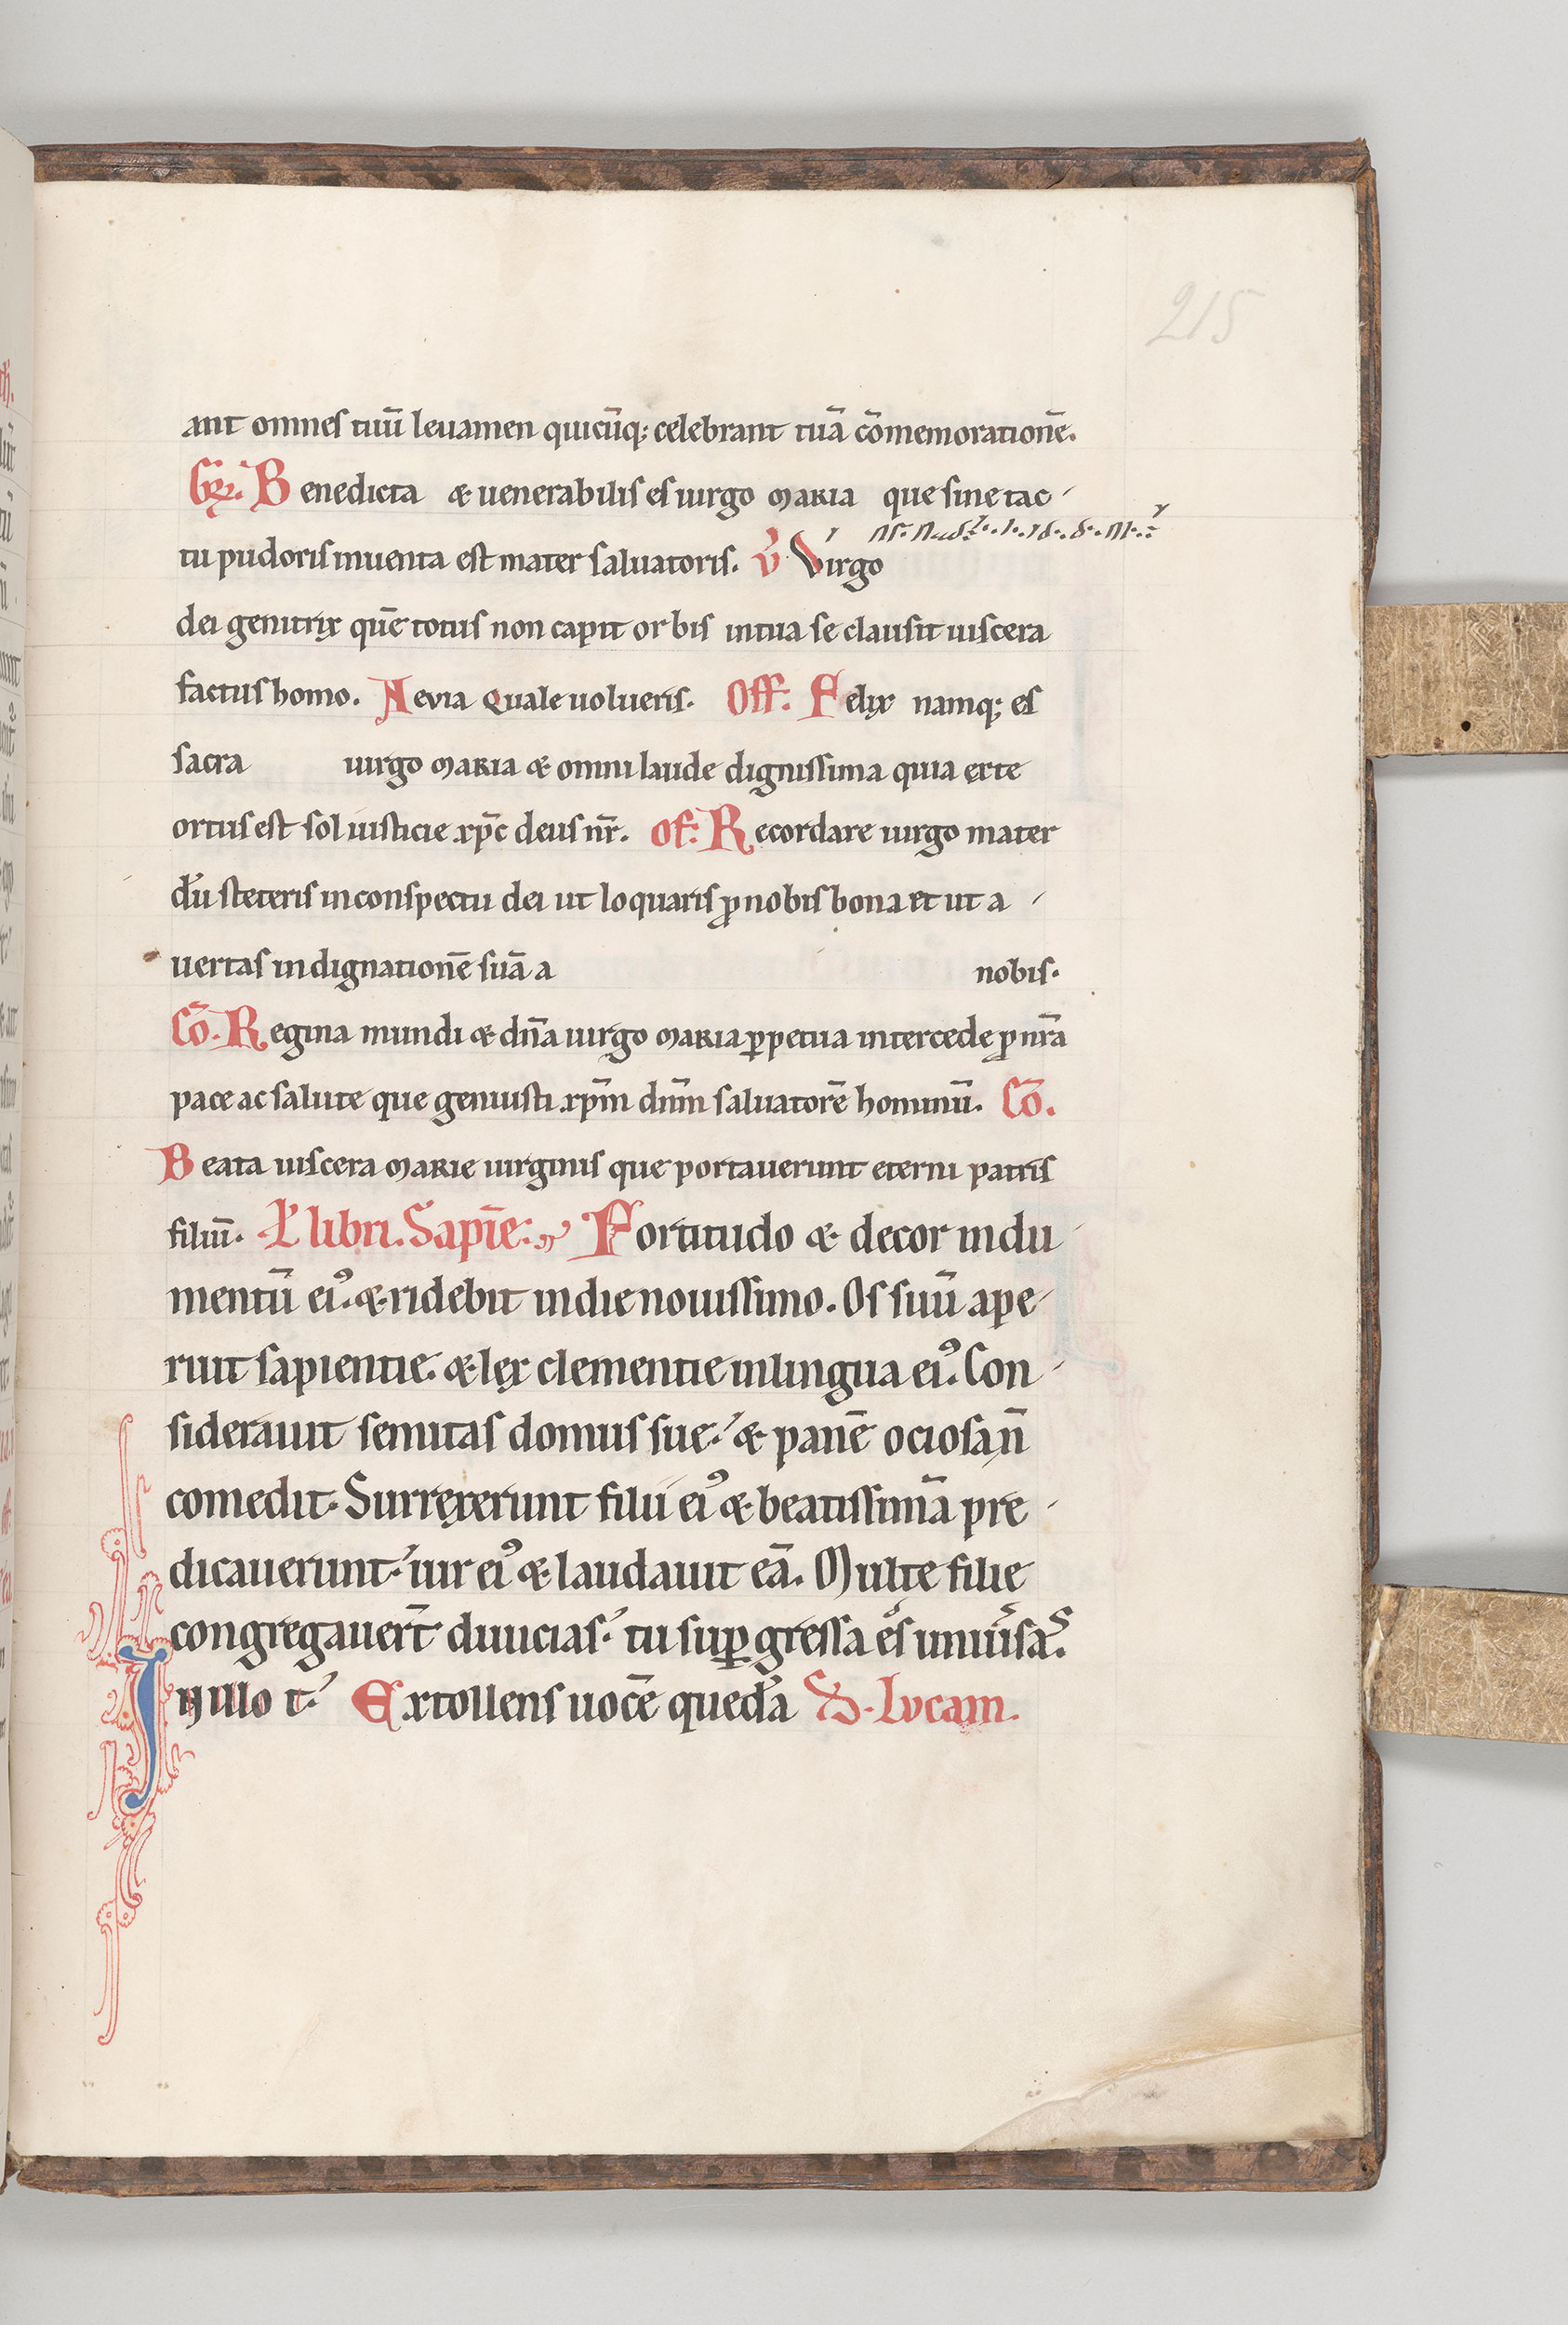 215
ant omnes tuū leuamen quicūq; celebrant tuā cōmemorationē.
Gr̄. Benedicta & uenerabilis es uirgo MARIA que sine tac
tu pudoris inuenta est mater saluatoris. v̄ Virgo
dei genitrix quē totus non capit orbis intua se clausit uiscera
factus homo. Aevia Quale uolueris. Off: Felix namq; es
sacra uirgo MARIA & omni laude dignissima quia ex te
ortus est sol iusticie xp̄c deus nr̄. Of: Recordare uirgo mater
dū steteris inconspectu dei ut loquaris ꝓ nobis bona et ut a
uertas indignationē suā a nobis.
Cō. Regina mundi & dn̄a uirgo MARIA ꝑpetua intercede ꝓ nr̄a
pace ac salute que genuisti xp̄m dn̄m saluatorē hominū. Cō.
Beata uiscera MARIE uirginis que portauerunt eterni patris
filiū. Ł libri. Sapīe. Fortitudo & decor indu
mentū eiꝰ. & ridebit indie nouissimo. Os suū ape
ruit sapientie. & lex clementie inlingua eiꝰ. Con
siderauit semitas domus sue. & panē ociosa n̄
comedit. Surrexerunt filii eiꝰ & beatissimā pre
dicauerunt. uir eiꝰ & laudauit eā. Multe filie
congregauer̄t diuicias. tu suꝑ gressa es uniūsas.
In illo t. Extollens uocē quedā S. Lucam.